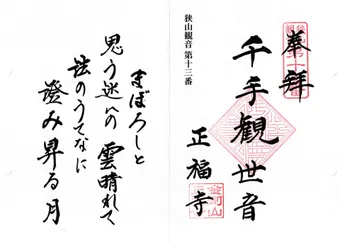 狭山観音 第十三番
奉拝
千手観世音
正福寺
まぼろしと
思う迷いの雲晴れて
法のうてなに
澄み昇る月